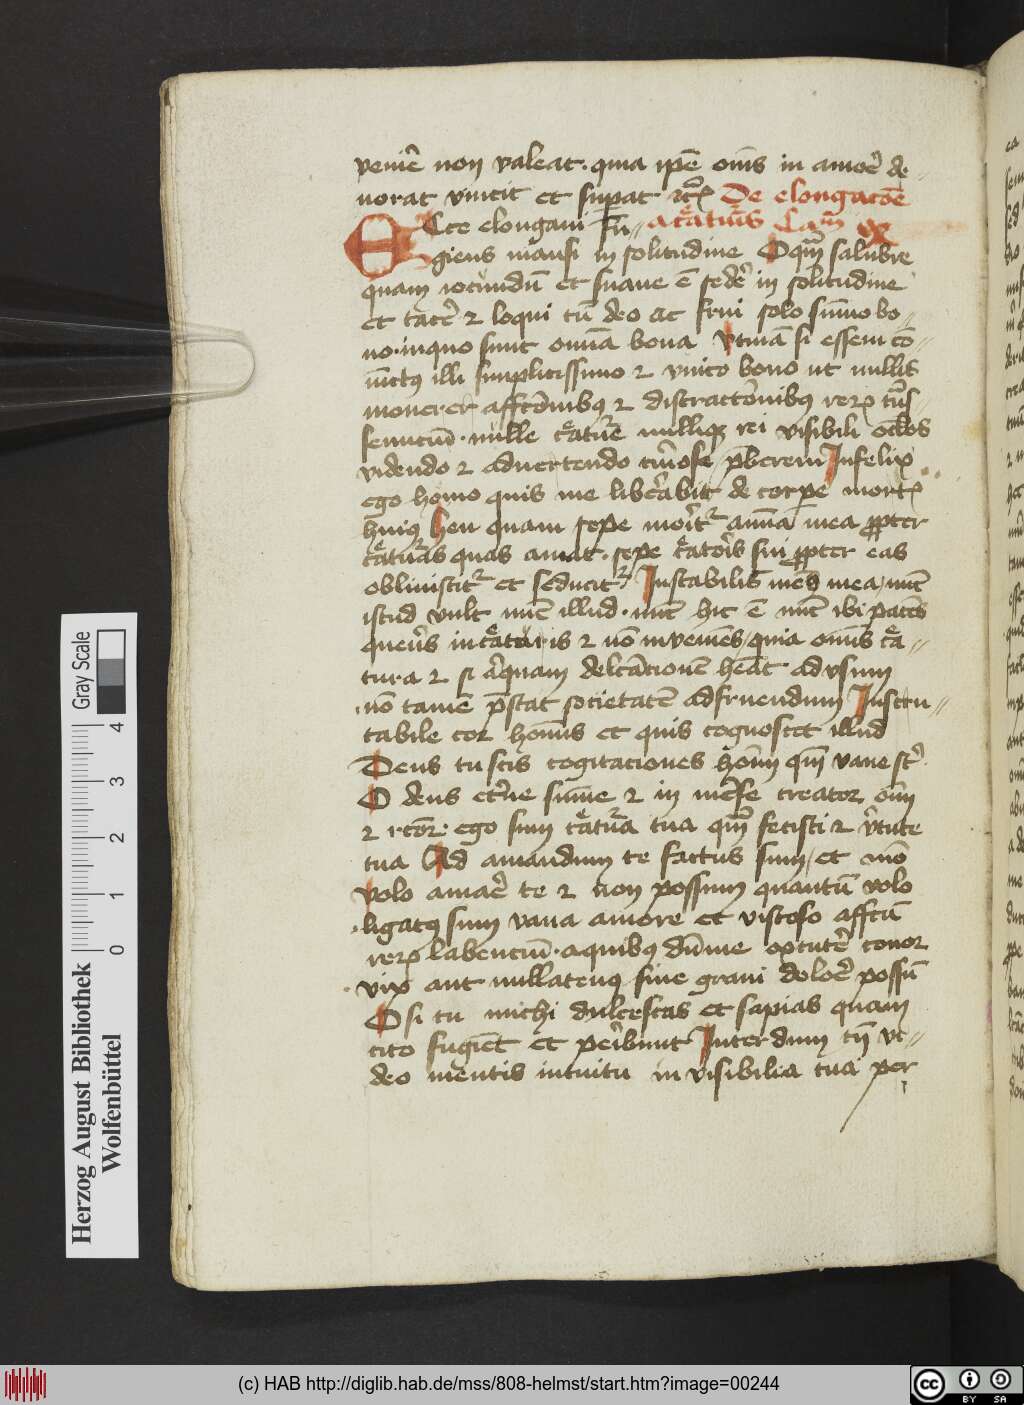 venire non valeat. quia ipē om̄s in amorē de-
uorat vincit et supat etc̄ De elongacōe
Ecce elongaui Fu- a creaturis Cam ix
giens mansi in solitudine O qm̄ salubre
quam iocundū et suaue ē sedere in solitudine
et tacere et loqui cū deo ac frui solo sūmo bo-
no. in quo sunt omnia bona Vtinā si essem cō-
iūctus illi simplicissimo et vnico bono ut nullis
mouerer affcōnibus et distractōnibus rerum trans-
seuncium. nulle creature nullique rei visibili oclos
videndo et aduertendo curiose preberem Infelix
ego homo quis me liberabit de corpore mortis
huius heu quam sepe morit anīa mea propter
creaturas quas amat. sepe creatoris sui propter eas
obliuiscit et seducit Instabilis mens mea, nūc
istud vult nūc illud. nūc hic ē nūc ibi pacēs
querens in creaturis et nō inueniēs quia om̄s crea-
tura et si aliquam delectacionē heat ad vsum
nō tamē prestat societatē ad fruendum Inscru-
tabile cor hominis et quis cognoscet illud
Deus tu scis cogitaciones hoīm qm̄ vane st̄
O deus eterne sūme et in mēse creator om̄
et rector. ego sum creatura tua quam fecisti et virtute
tua Ad amandum te factus sum, et nō
volo amare te et non possum quantū volo
ligatus sum vana amore et viscoso affectū
rerum labenciū. a quibus dūme extutere conor
vix aut nullatenus sine graui dolore possū
O si tu michi dulcescas et sapias quam
cito fugiēt et peribunt Interdum tn̄ vi-
deo mentis intuitu in visibilia tua per
Herzog August Bibliothek
Wolfenbüttel
0 1 2 3 4
Gray Scale
(c) HAB http://diglib.hab.de/mss/808-helmst/start.htm?image=00244
cc BY SA